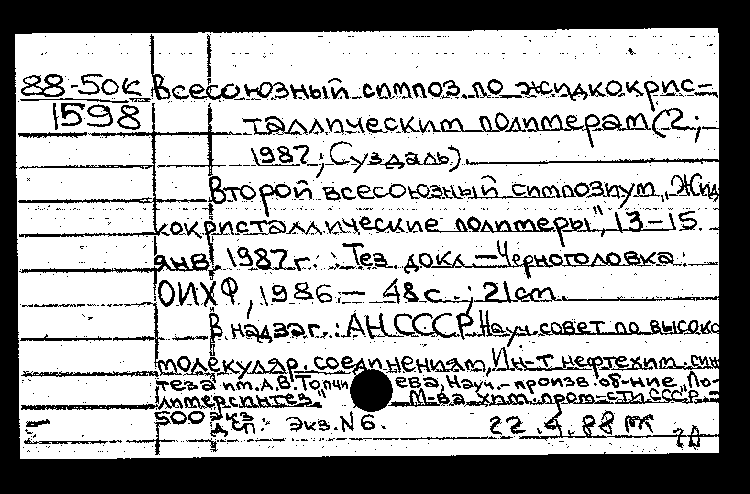 88-50к Всесоюзный симпоз. по жидкокрис-
1598 таллическим полимерам (2;
1987; Суздаль).
Второй всесоюзный симпозиум „Жид
кокристаллические полимеры", 13-15
янв. 1987 г.: Тез. докл. — Черноголовка:
ОИХФ, 1986. — 48 с.; 21 cm.
В надзаг.: АН СССР, Науч. совет по высоко
молекуляр. соединениям, Ин-т нефтехим. син
теза им. А.В. Топчи ева, Науч.-произв. об-ние „По-
лимерсинтез" М-ва хим. пром-сти СССР. =
500 экз.
ДСП: Экз. N 6. 22.4.88